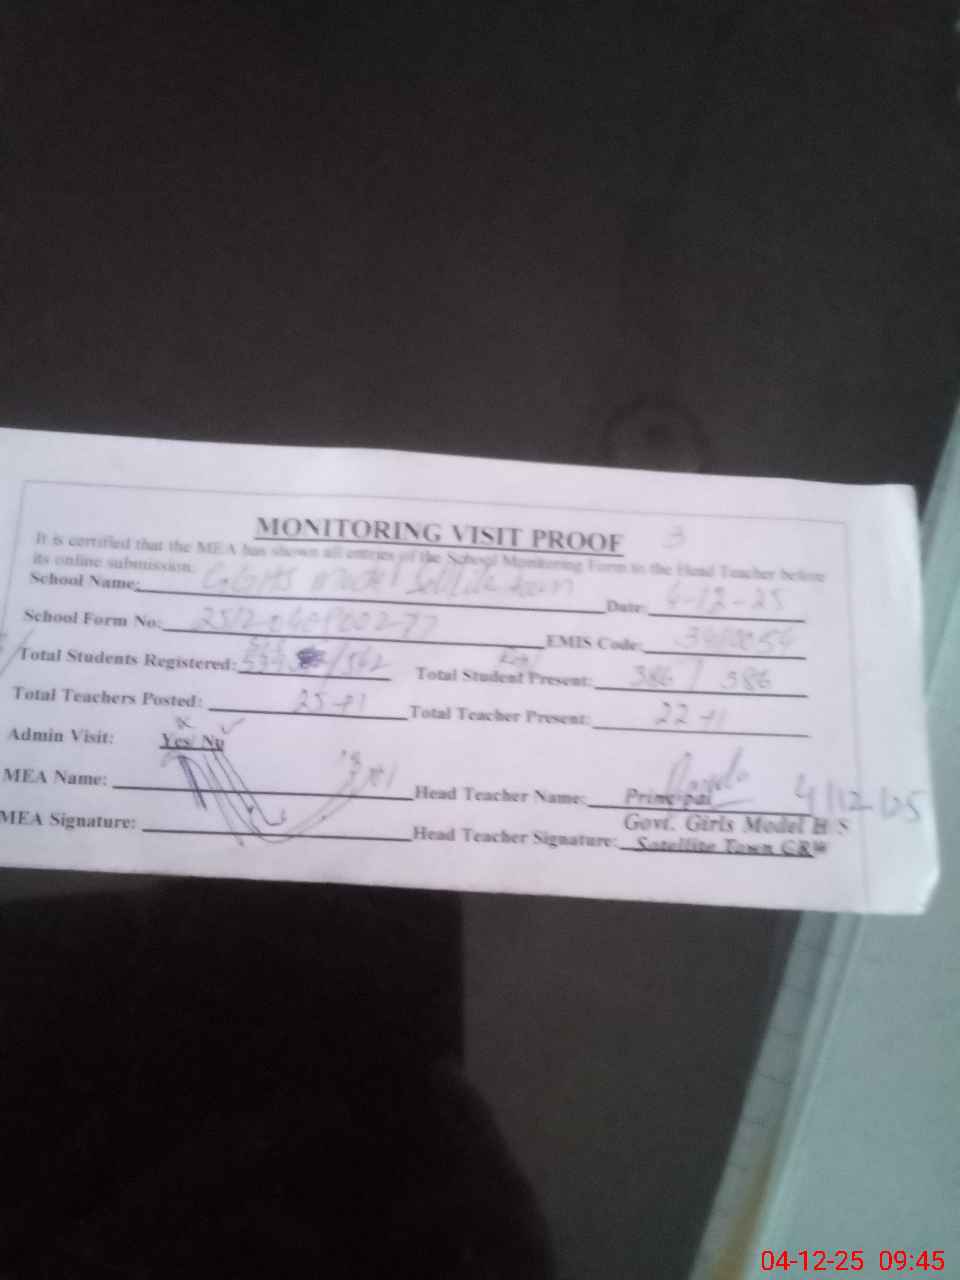 MONITORING VISIT PROOF 3
It is certified that the MEA has shown all entries of the School Monitoring Form to the Head Teacher before
its online submission.
School Name: GGHS model Date: 4-12-25
School Form No: EMIS Code:
Total Students Registered: /562 Total Student Present: 386 / 386
Total Teachers Posted: 25+1 Total Teacher Present: 22+1
Admin Visit: Yes/ No
MEA Name: Head Teacher Name: Principal 4/12/25
Govt. Girls Model H S
MEA Signature: Head Teacher Signature: Satellite Town GRW
04-12-25 09:45